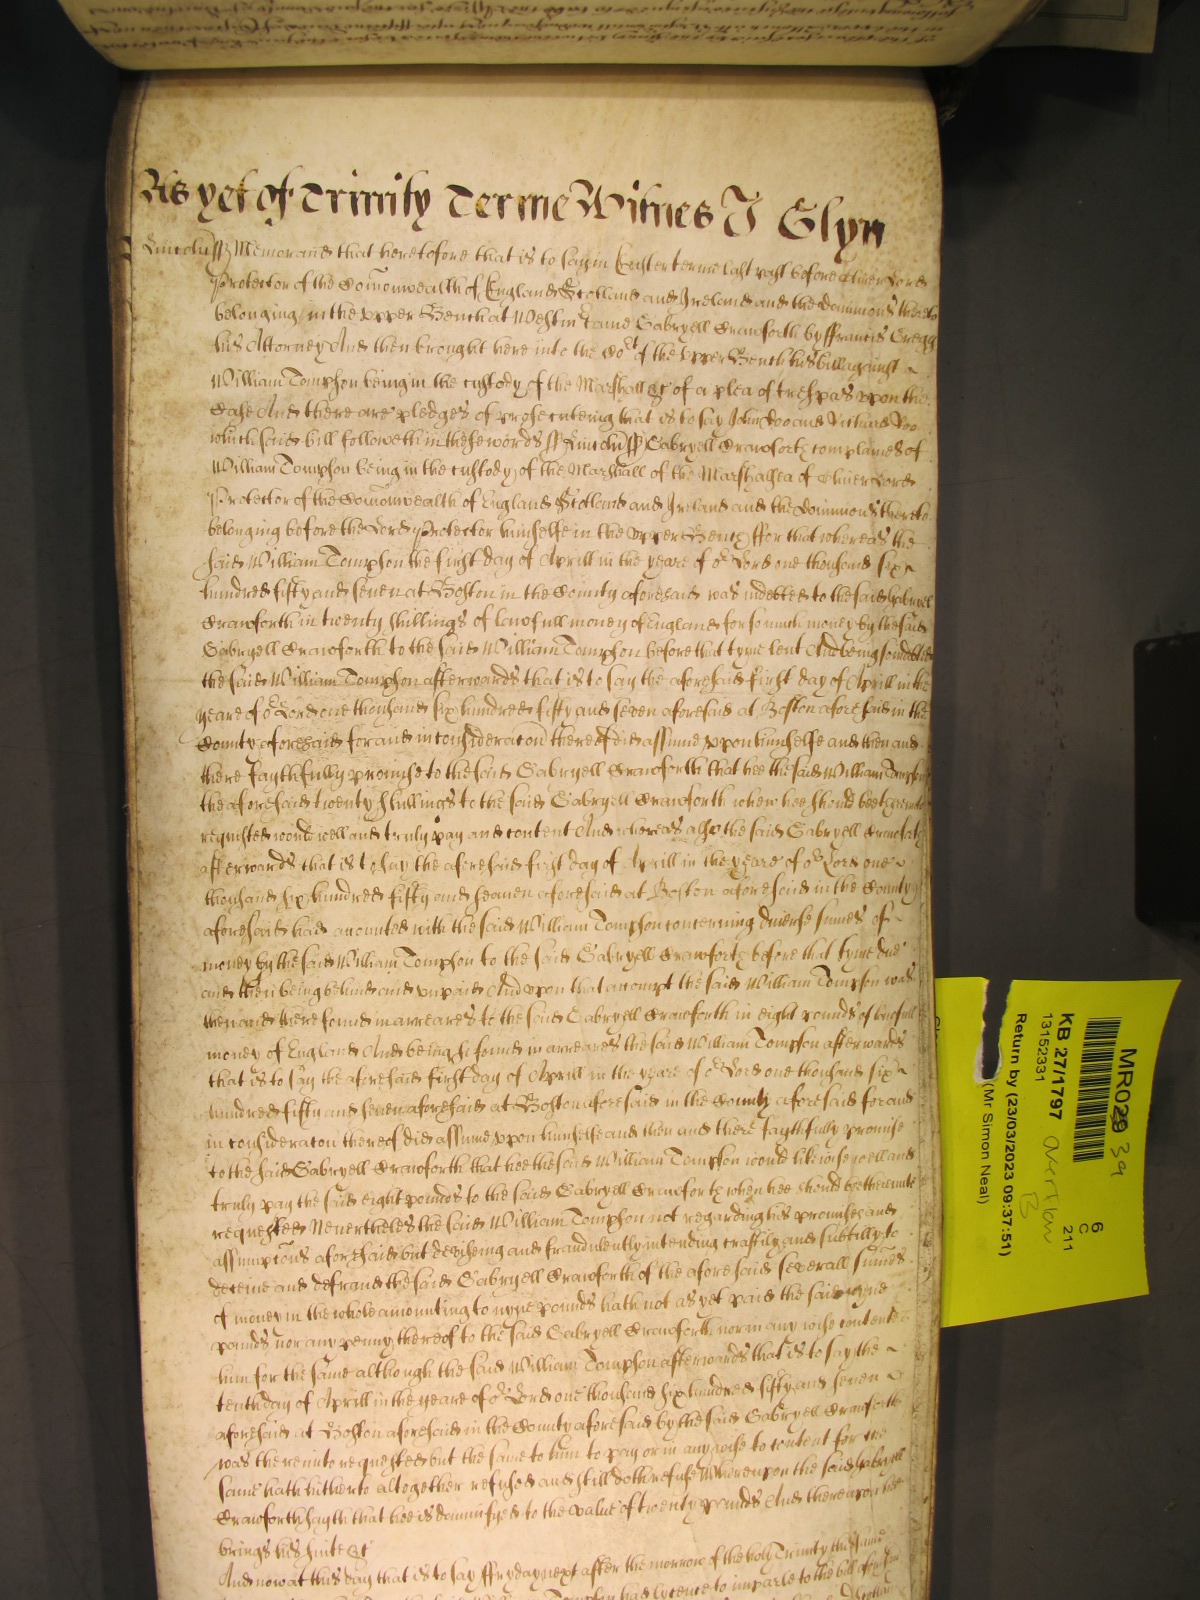 As yet of Trinity Terme Witnes J Glyn
Lincoln ss Memorand that heretofore that is to say in Easter terme last past before Oliver Lord
Protector of the Comonwealth of England Scotland and Ireland and the Dominions thereto
belonging in the upper Bench at Westm came Gabryell Crawforth by ffrancis Gregg
his Attorney And then brought here into the Cot of the Upper Bench his bill against
William Tompson being in the custody of the Marshall &c of a plea of trespas upon the
Case And there are pledges of prosecuteing that is to say John Doo and Richard Roo
which said bill followeth in these words ss Lincoln ss Gabryell Crawforth complaines of
William Tompson being in the custody of the Marshall of the Marshalsea of Oliver Lord
Protector of the Comonwealth of England Scotland and Ireland and the Dominions thereto
belonging before the Lord Protector himselfe in the upper Bench ffor that whereas the
said William Tompson the first day of Aprill in the yeare of or Lord one thousand six
hundred fifty and seven at Boston in the County aforesaid was indebted to the said Gabryell
Crawforth in twenty shillings of lawfull money of England for so much money by the said
Gabryell Crawforth to the said William Tompson before that tyme lent And being so indebted
the said William Tompson afterwards that is to say the aforesaid first day of Aprill in the
yeare of or Lord one thousand six hundred fifty and seven aforesaid at Boston aforesaid in the
County aforesaid for and in consideracon thereof did assume upon himselfe and then and
there faythfully promise to the said Gabryell Crawforth that hee the said William Tompson
the aforesaid twenty shillings to the said Gabryell Crawforth when hee should bee thereunto
requested would well and truly pay and content And whereas also the said Gabryell Crawforth
afterwards that is to say the aforesaid first day of Aprill in the yeare of or Lord one
thousand six hundred fifty and seaven aforesaid at Boston aforesaid in the County
aforesaid had acounted with the said William Tompson concerning diverse sumes of
money by the said William Tompson to the said Gabryell Crawforth before that tyme due
and then being behind and unpaid And upon that accompt the said William Tompson was
then and there found in arreares to the said Gabryell Crawforth in eight pounds of lawfull
money of England And being so found in arreares the said William Tompson afterwards
that is to say the aforesaid first day of Aprill in the yeare of or Lord one thousand six
hundred fifty and seven aforesaid at Boston aforesaid in the County aforesaid for and
in consideracon thereof did assume upon himselfe and then and there faythfully promise
to the said Gabryell Crawforth that hee the said William Tompson would likewise well and
truly pay the said eight pounds to the said Gabryell Crawforth when hee should bee thereunto
requested Nevertheles the said William Tompson not regarding his promises and
assumpcons aforesaid but deviseing and fraudulently intending craftily and subtilly to
deceive and defraud the said Gabryell Crawforth of the aforesaid severall sumes
of money in the whole amounting to nyne pounds hath not as yet paid the said nyne
pounds nor any penny thereof to the said Gabryell Crawforth nor in any wise contented
him for the same although the said William Tompson afterwards that is to say the
tenth day of Aprill in the yeare of or Lord one thousand six hundred fifty and seven
aforesaid at Boston aforesaid in the County aforesaid by the said Gabryell Crawforth
was thereunto requested but the same to him to pay or in any wise to content for the
same hath hitherto altogether refused and still doth refuse Whereupon the said Gabryell
Crawforth sayth that hee is damnifyed to the value of twenty pounds And thereupon hee
brings his suite &c
And now at this day that is to say ffryday next after the morrow of the holy Trinity this same
Tompson had lycence to imparle to the bill aforesaid
MR029 39
6
C
211
KB 27/1797
overflow
B
13152331
Return by (23/03/2023 09:37:51)
(Mr Simon Neal)